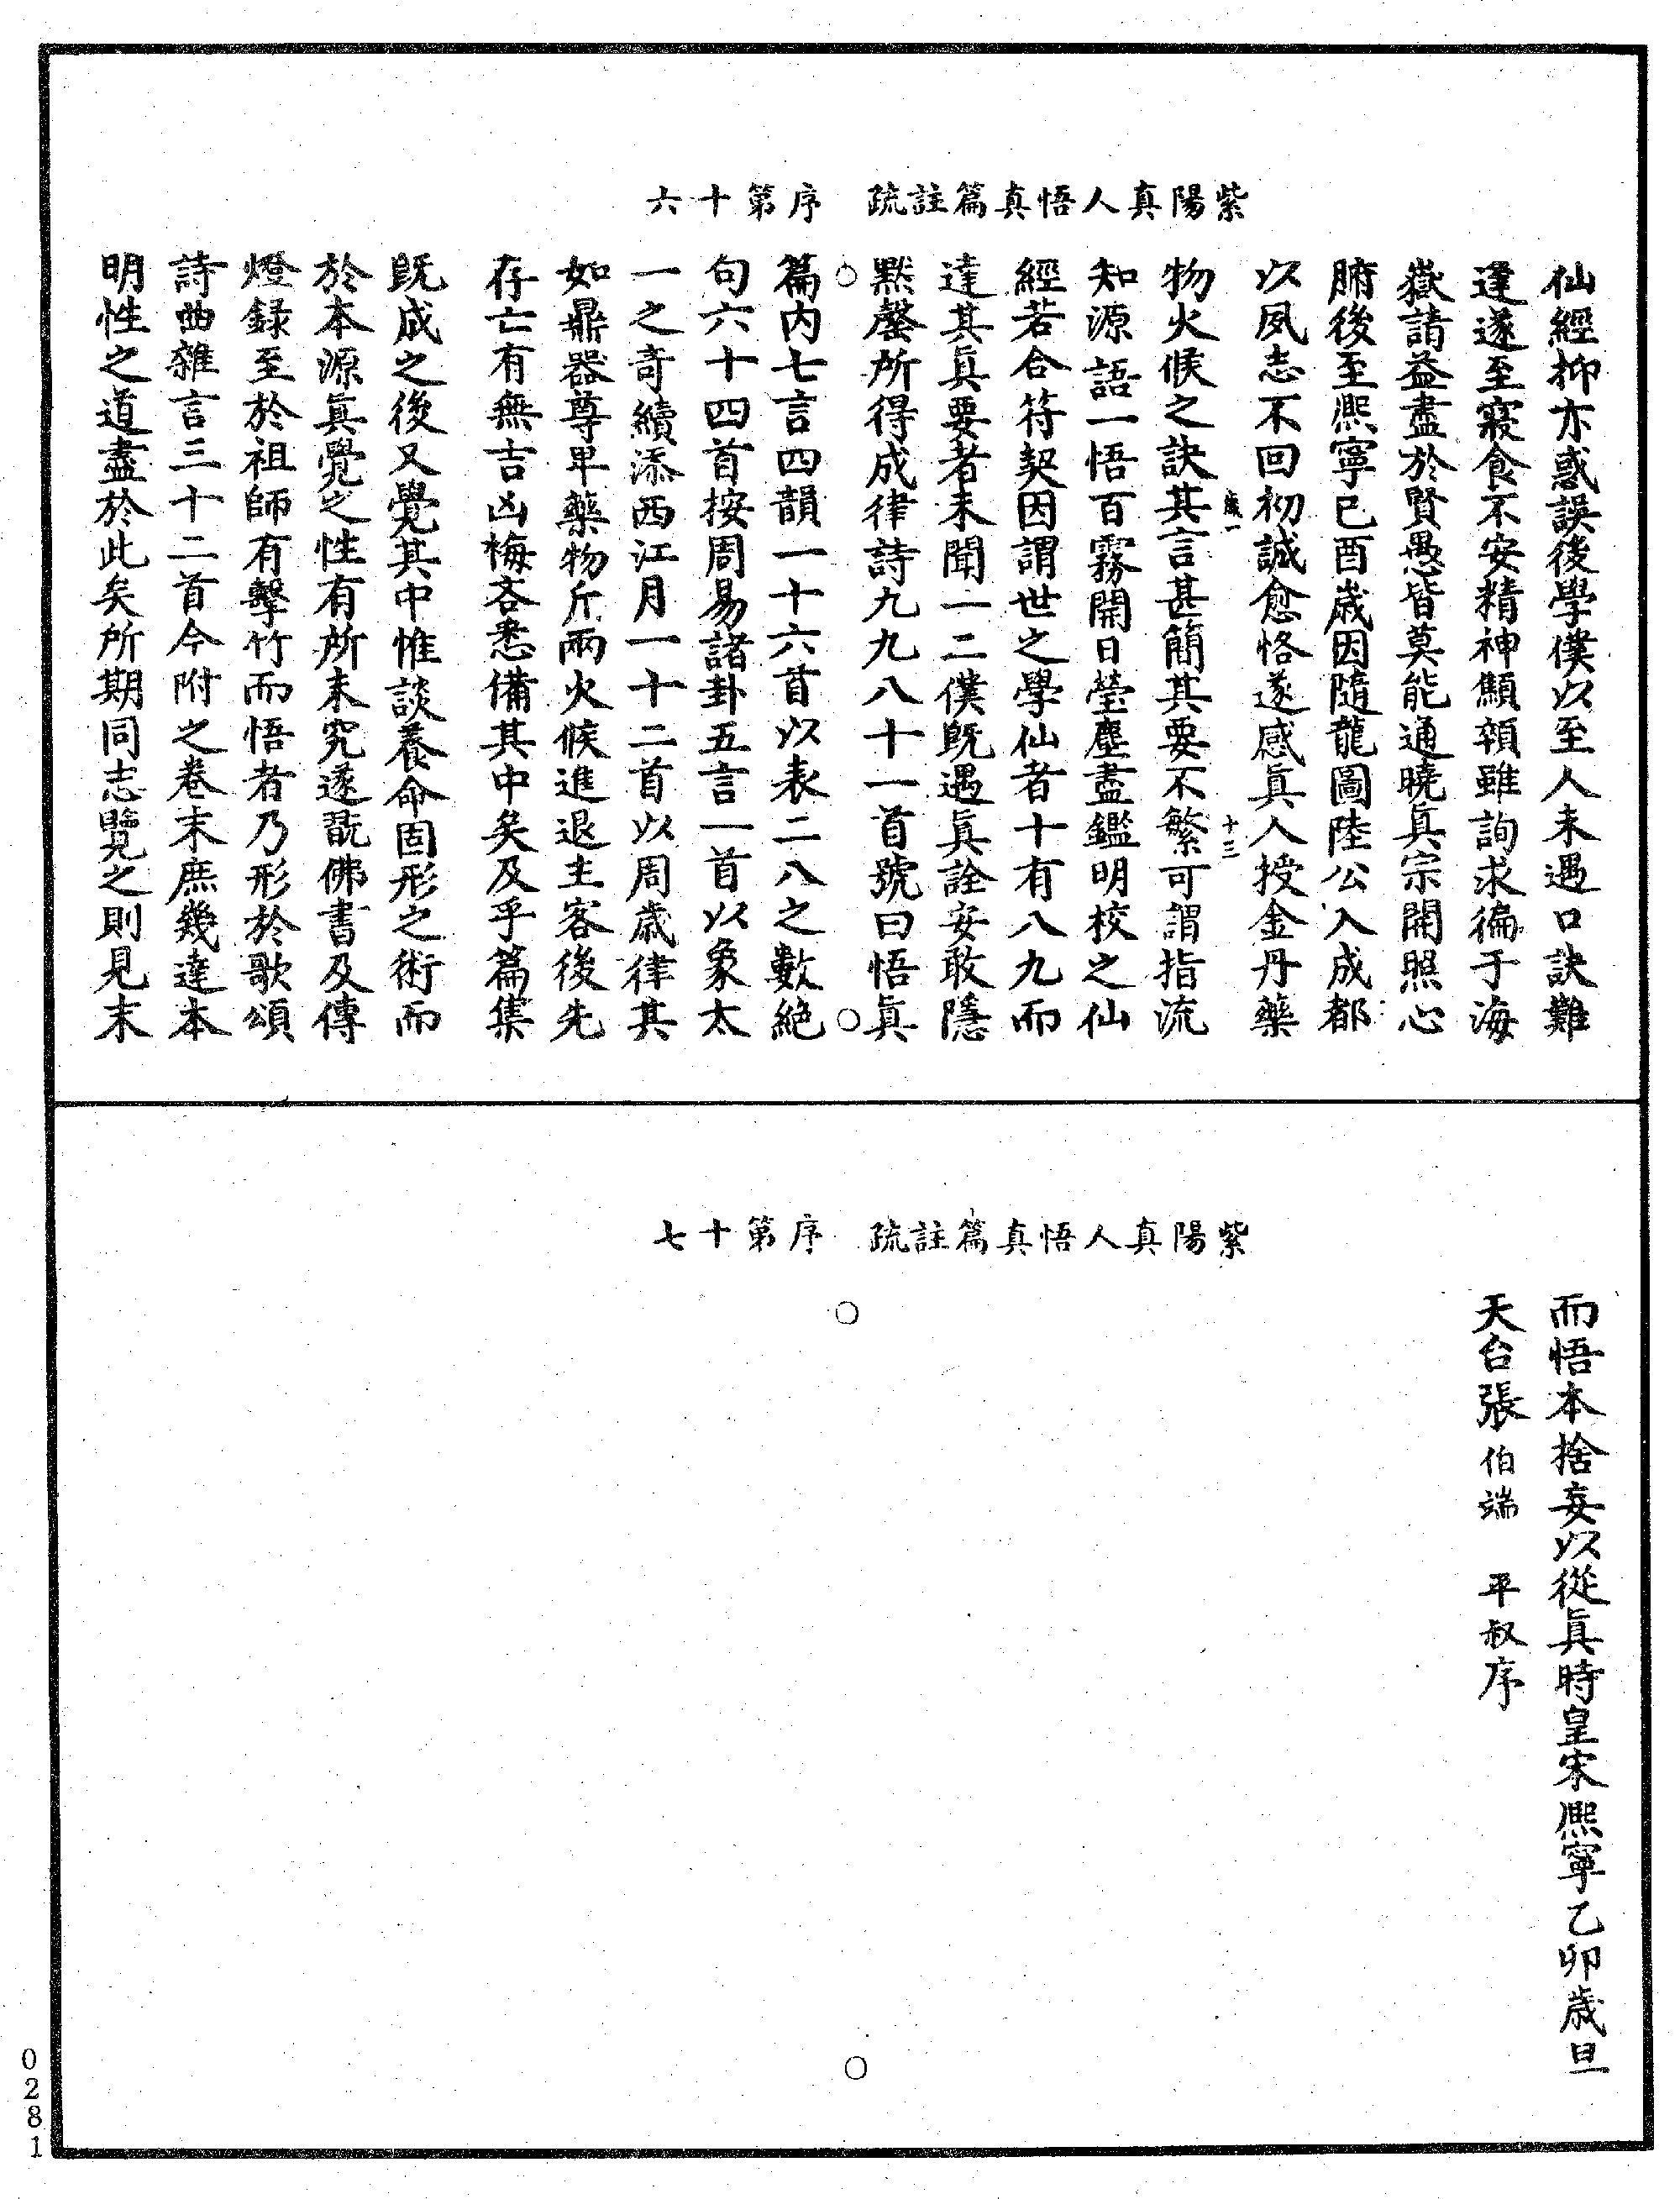 紫陽真人悟真篇註疏　序第十六
仙經抑亦惑誤後學僕以至人未遇口訣難
逢遂至寢食不安精神顦顇雖詢求徧于海
嶽請益盡於賢愚皆莫能通曉眞宗開照心
腑後至熙寧已酉歲因隨龍圖陸公入成都
以夙志不回初誠愈恪遂感眞人授金丹藥
物火候之訣其言甚簡其要不繁可謂指流
歲一
十三
知源語一悟百霧開日瑩塵盡鑑明校之仙
經若合符契因謂世之學仙者十有八九而
達其眞要者未聞一二僕旣遇眞詮安敢隱
默罄所得成律詩九九八十一首號曰悟眞
篇內七言四韻一十六首以表二八之數絕
句六十四首按周易諸卦五言一首以象太
一之奇續添西江月一十二首以周歲律其
如鼎器尊卑藥物斤兩火候進退主客後先
存亡有無吉凶悔吝悉備其中矣及乎篇集
旣成之後又覺其中惟談養命固形之術而
於本源眞覺之性有所未究遂翫佛書及傳
燈錄至於祖師有擊竹而悟者乃形於歌頌
詩曲雜言三十二首今附之卷末庶幾達本
明性之道盡於此矣所期同志覽之則見末
紫陽真人悟真篇註疏　序第十七
而悟本捨妄以從眞時皇宋熙寧乙卯歲旦
天台張伯端　平叔序
0281